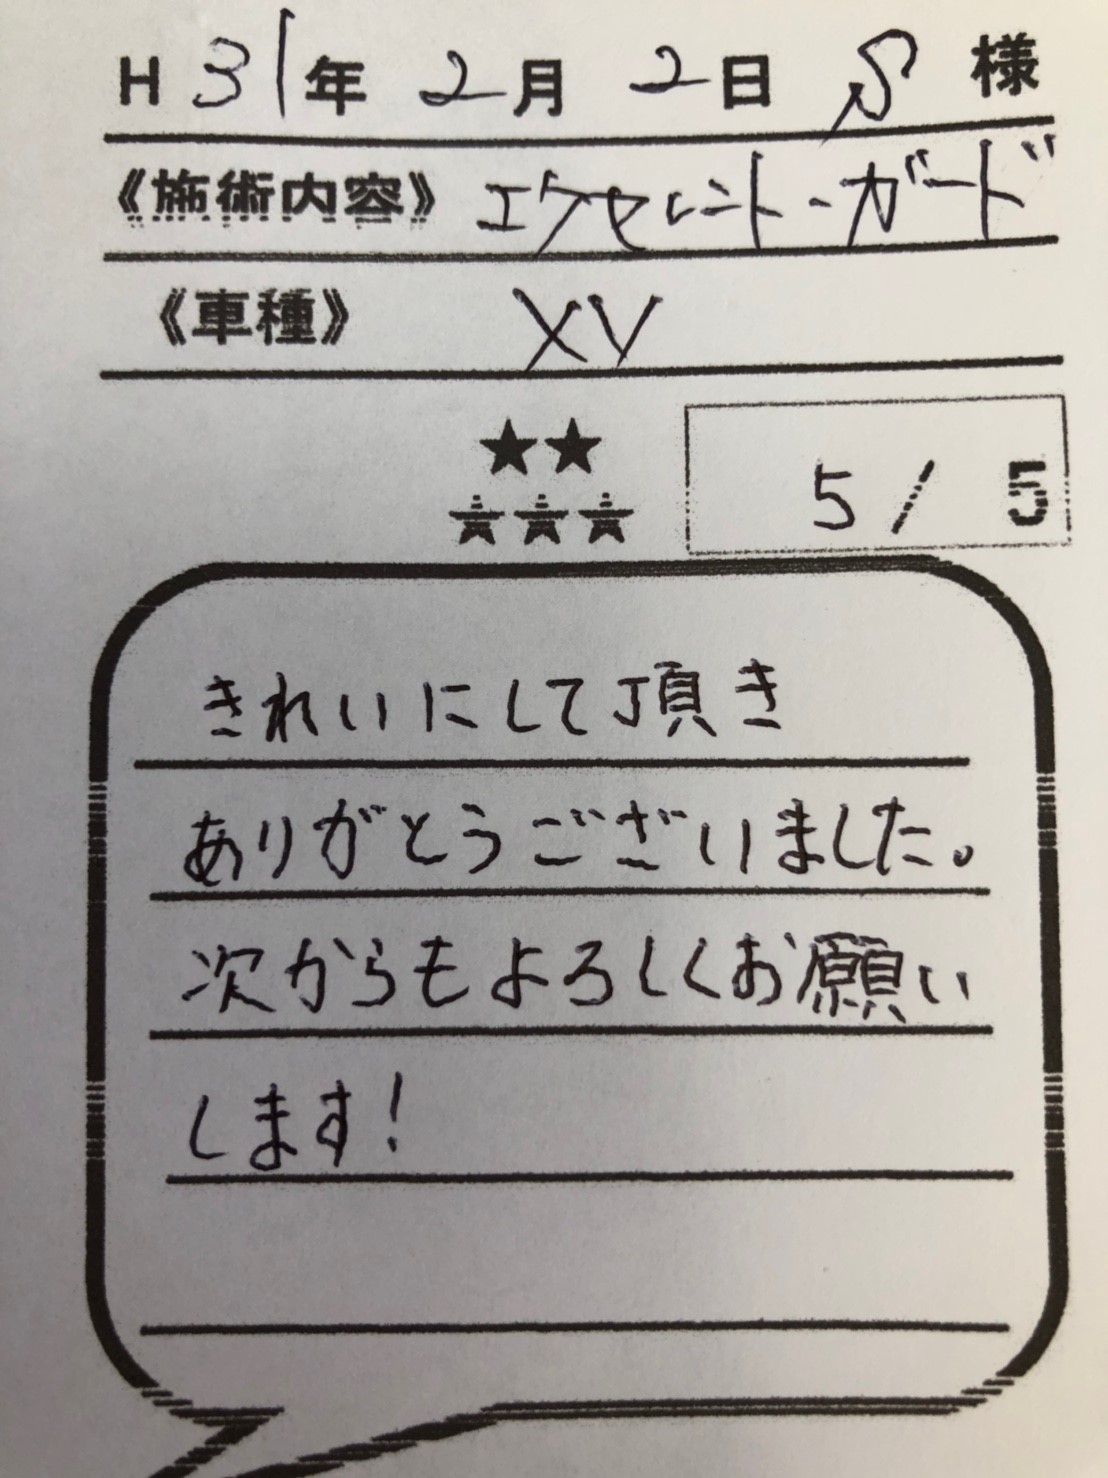 H 31年 2月 2日 S 様
《施術内容》 エクセレント・ガード
《車種》 XV
★★
★★★
5 / 5
きれいにして頂き
ありがとうございました。
次からもよろしくお願い
します!